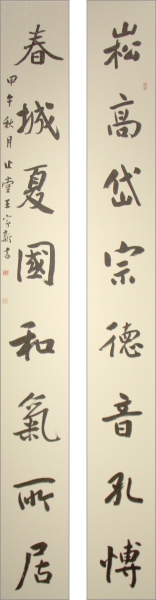 崧高岱宗德音孔博
春城夏國和氣所居
甲午秋月止堂王宇新書